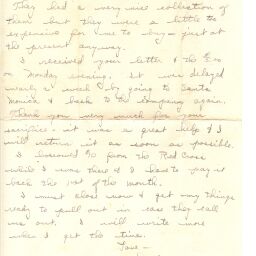 They had a very nice collection of
them but they were a little to
expensive for me to buy - just at
the present anyway.
I received your letter & the $20
on Monday evening. It was delayed
nearly a week by going to Santa
Monica & back to the company again.
Thank you very much for your
sacrifice - it was a great help & I
will return it as soon as possible.
I borrowed $10 from the Red Cross
while I was there & I have to pay it
back the 1st of the month.
I must close now & get my things
ready to pull out in case they call
me out. I will write more
when I get the time.
Love -